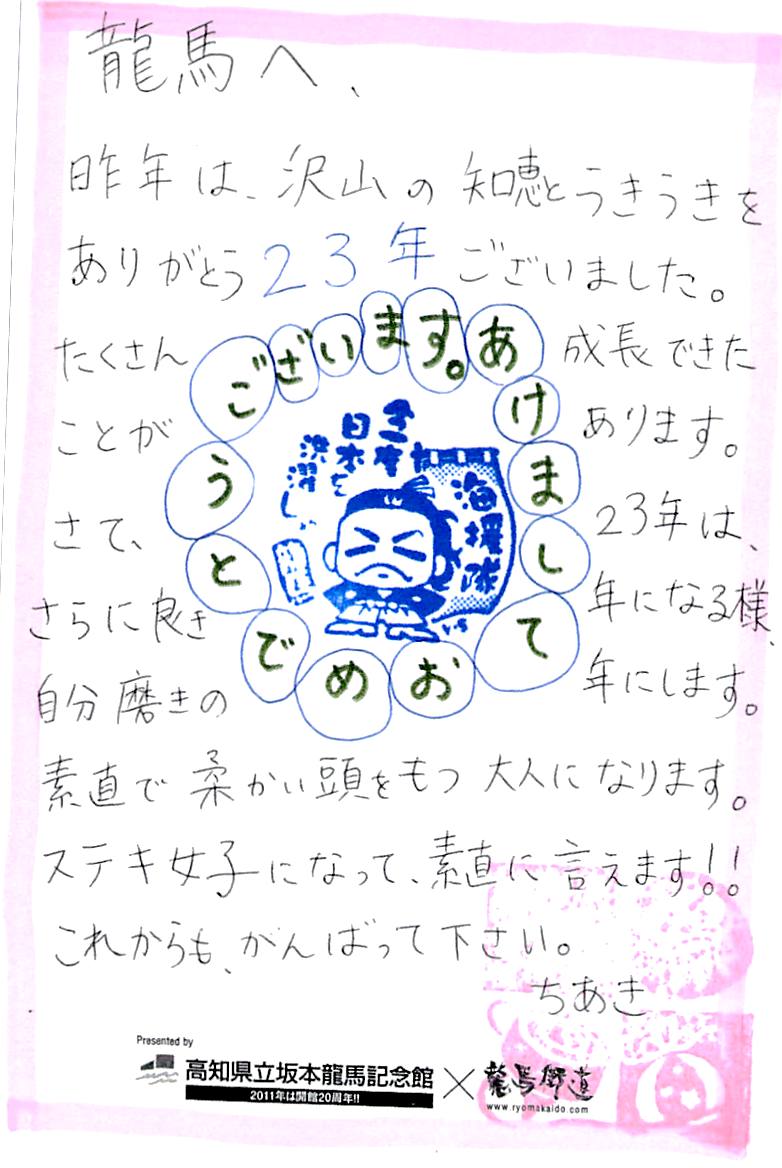 龍馬へ、
昨年は、沢山の知恵とうきうきを
ありがとう23年ございました。
たくさん 成長できた
ことが あります。
さて、 23年は、
さらに良き 年になる様、
自分磨きの 年にします。
素直で柔かい頭をもつ大人になります。
ステキ女子になって、素直に言えます!!
これからも、がんばって下さい。
ちあき
あけましておめでとうございます。
今一度
日本を
洗濯し
海援隊
Presented by
高知県立坂本龍馬記念館×龍馬街道
2011年は開館20周年!!
www.ryomakaido.com